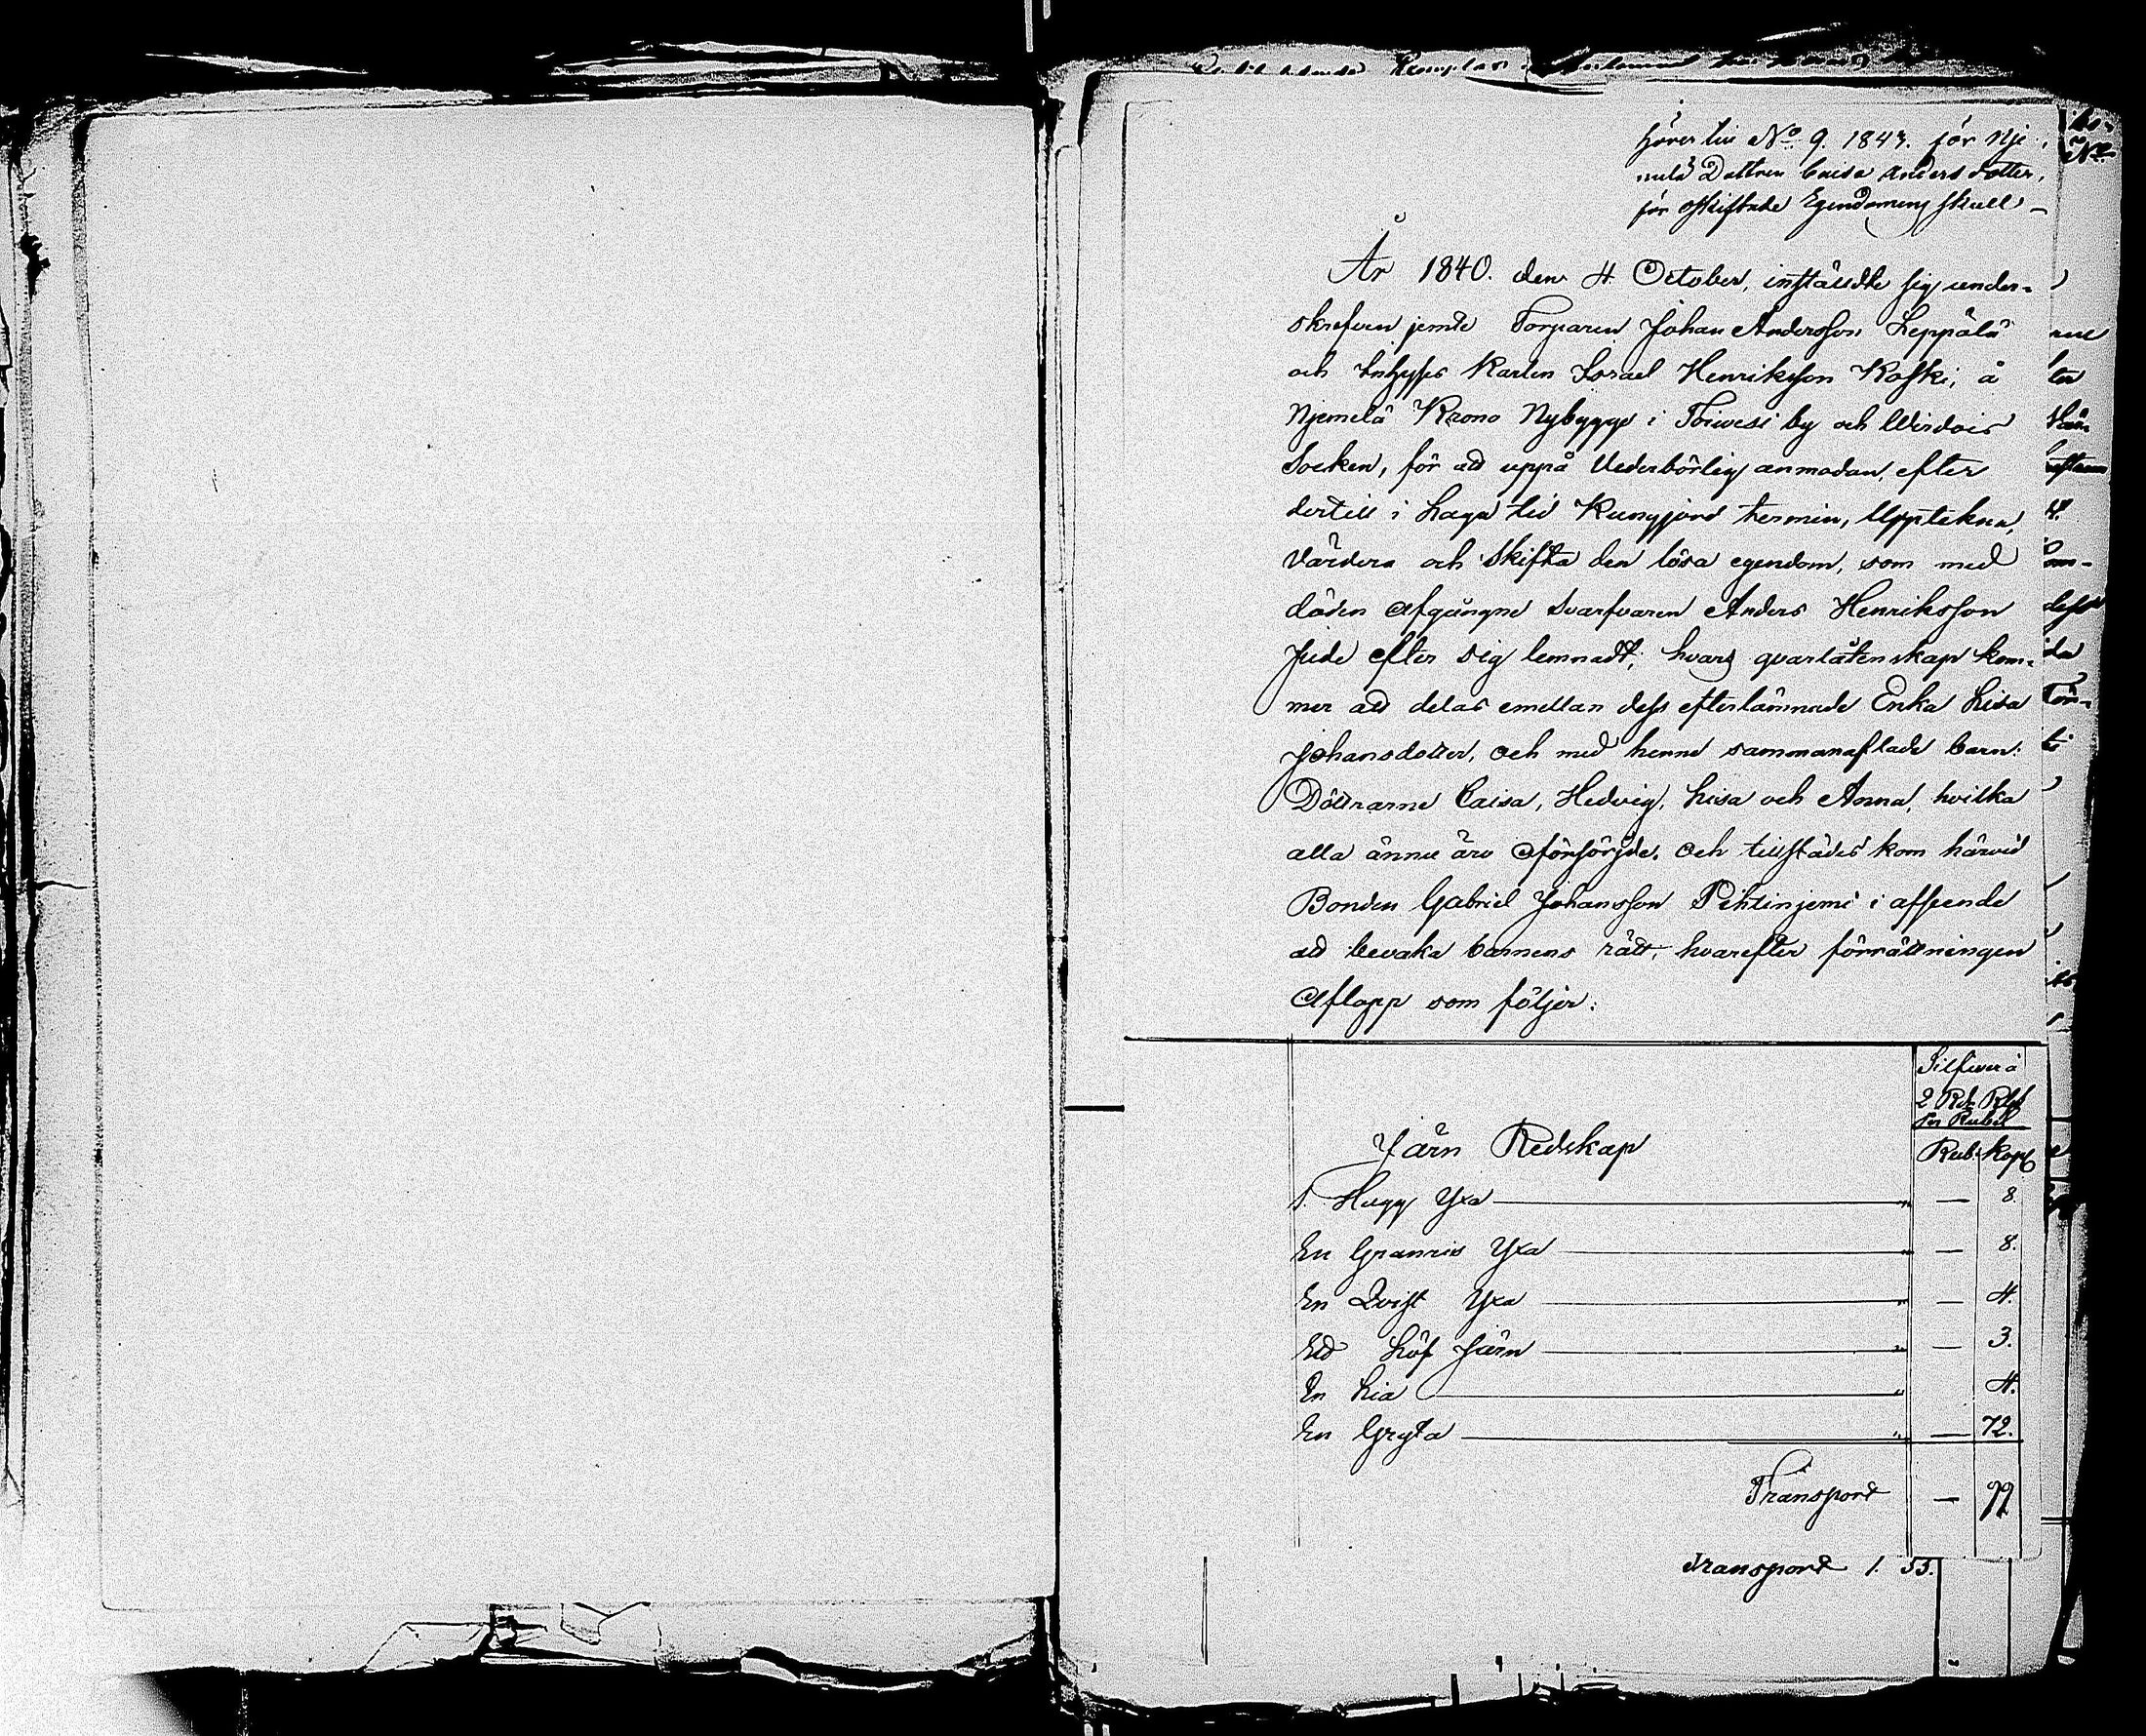 hörer till No 9. 1847. för Nje-
melä Dottren Caisa Andersdotter,
för oskiftade Egendomens skull
År 1840. den 4 October, instäldte sig under-
skrefven jemte Torparen Johan Andersson Leppälä
och Inhyses Karlen Israel Henriksson Koski, å
Njemelä Krono Nybygge i Toiwesi by och Wirdois
Socken, för att uppå Vederbörlig anmodan, efter
dertill i Laga tid Kungjord termin, Upptekna,
Värdera och Skifta den lösa egendom, som med
döden Afgångne Svarfvaren Anders Henriksson
Jude efter sig lemnadt; hvars qvarlåtenskap kom-
mer att delas emellan dess efterlämnade Enka Lisa
Johansdotter, och med henne sammanaflade barn:
Döttrarne Caisa, Hedvig, Lisa och Anna, hvilka
alla ännu äro Oförsörjde. Och tillstädes kom härvid
Bonden Gabriel Johansson Pihtinjemi i afseende
att bevaka barnens rätt, hvarefter förrättningen
Aflopp som följer:
Silfwer à
2 Rd Rgs
pr Rubel
Järn Redskap Rub. Kop
1. Hugg Yxa — 8.
En Granris Yxa — 8.
En Qvist Yxa — 4.
Ett Löf Järn — 3.
En Lia 4.
En Gryta — 72.
Transport — 99
Transport 1. 55.